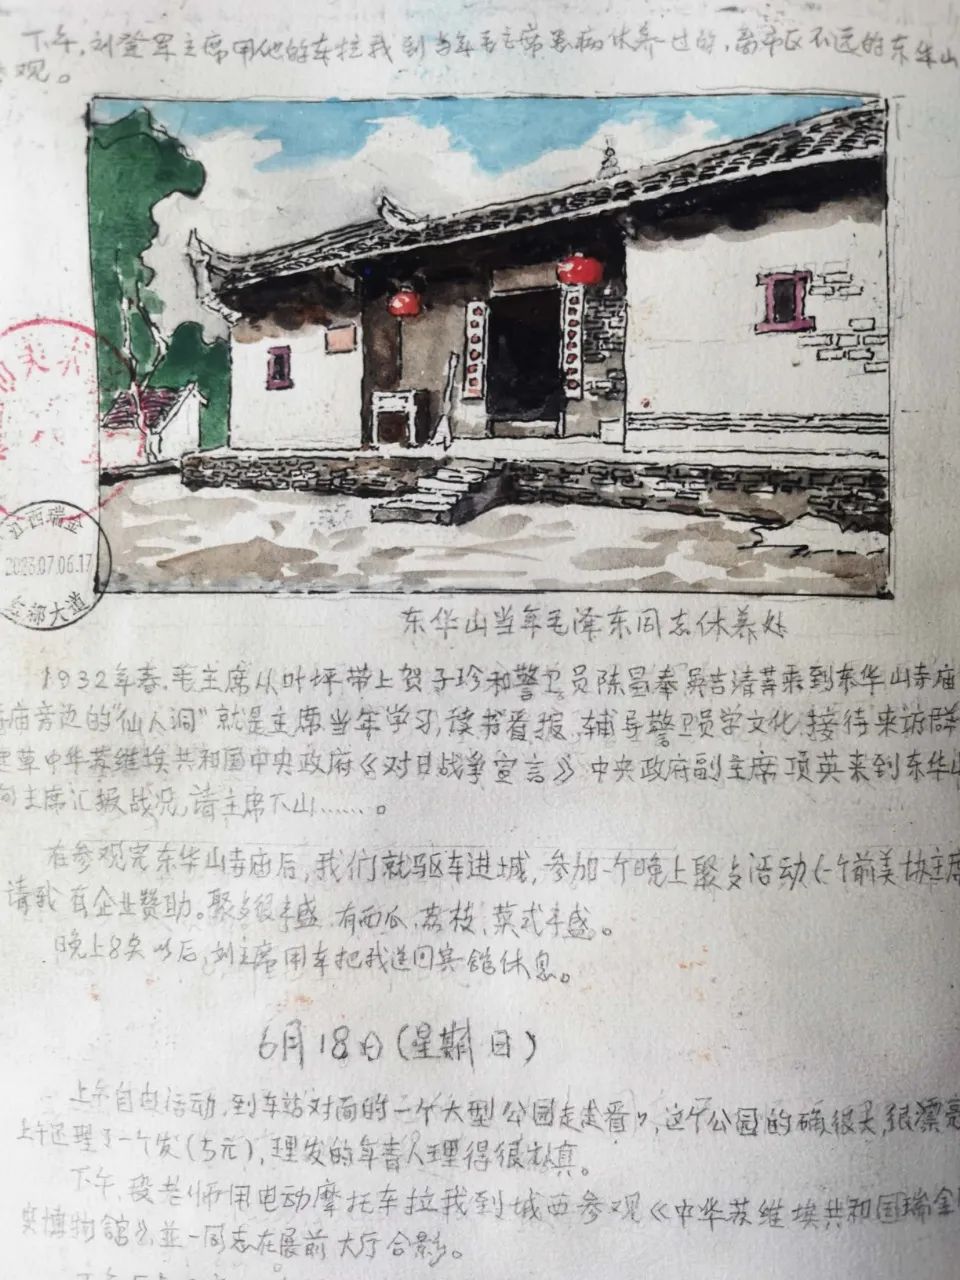 下午,刘登军主席用他的车拉我到当年毛主席养病休养过的,离市区不远的东华山
参观。
江西瑞金
2023.07.06.17
红都大道
东华山当年毛泽东同志休养处
1932年春,毛主席从叶坪带上贺子珍和警卫员陈昌奉吴吉清等来到东华山寺庙
寺庙旁边的“仙人洞”就是主席当年学习,读书看报,辅导警卫员学文化,接待来访群
起草中华苏维埃共和国中央政府《对日战争宣言》中央政府副主席项英来到东华山
向主席汇报战况,请主席下山……。
在参观完东华山寺庙后,我们就驱车进城,参加一个晚上聚歺活动(一个前美协主席
请我 有企业赞助。聚歺很丰盛,有西瓜,荔枝,菜式丰盛。
晚上8点以后,刘主席用车把我送回宾馆休息。
6月18日(星期日)
上午自由活动,到车站对面的一个大型公园走走看看,这个公园的确很大,很漂亮
上午还理了一个发(5元),理发的年青人理得很认真。
下午,段老师用电动摩托车拉我到城西参观《中华苏维埃共和国瑞金
博物馆》,並一同志在展前大厅合影。